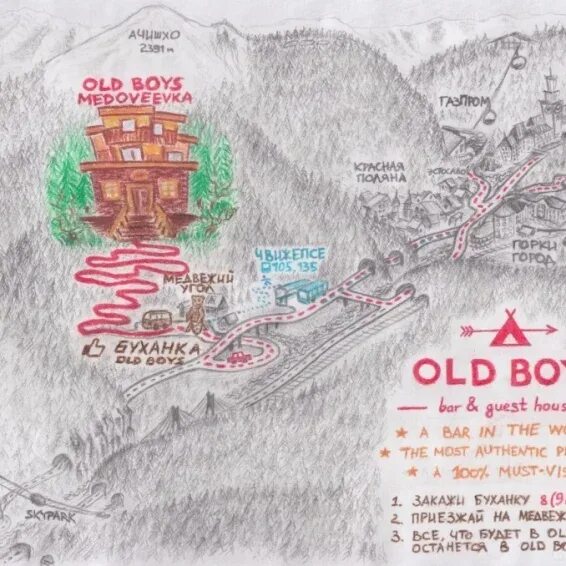 АЧИШХО
2391 м
OLD BOYS
MEDOVEEVKA
ГАЗПРОМ
КРАСНАЯ
ПОЛЯНА
ЧВИЖЕПСЕ
105, 135
ГОРКИ
ГОРОД
МЕДВЕЖИЙ
УГОЛ
БУХАНКА
OLD BOYS
OLD BOY
bar & guest hous
A BAR IN THE WO
THE MOST AUTHENTIC P
A 100% MUST-VIS
1. ЗАКАЖИ БУХАНКУ 8(9
2. ПРИЕЗЖАЙ НА МЕДВЕЖ
3. ВСЕ, ЧТО БУДЕТ В OL
ОСТАНЕТСЯ В OLD BO
SKYPARK